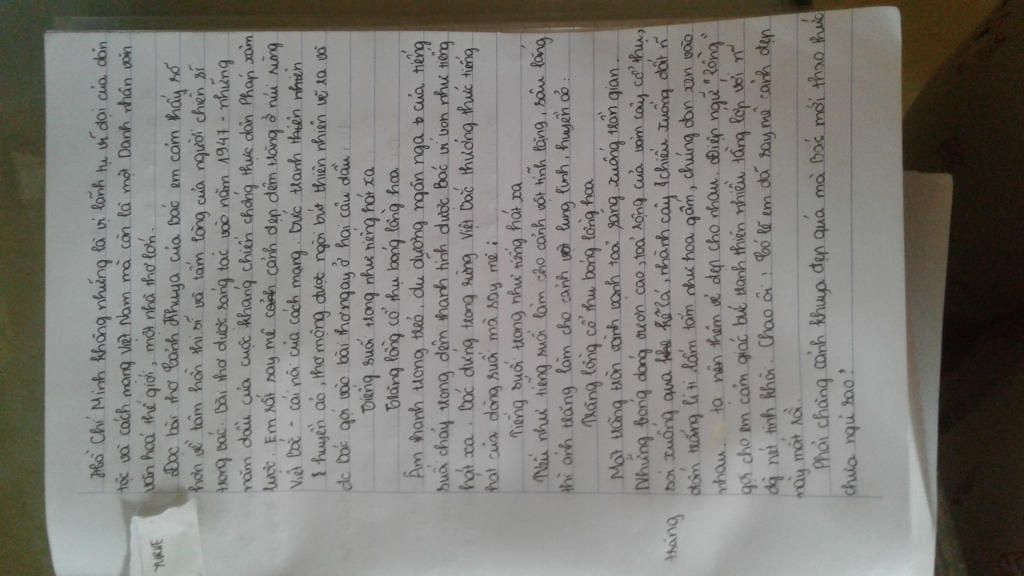 Hồ Chí Minh không những là vị lãnh tụ vĩ đại của dân
tộc và cách mạng Việt Nam mà còn là một Danh nhân văn
văn hoá thế giới, một nhà thơ lớn.
Đọc bài thơ "Cảnh khuya" của Bác em cảm thấy số
hơn về tâm hồn thi sĩ và tấm lòng của người chiến sĩ
trong Bác. Bài thơ được sáng tác vào năm 1947 - những
năm đầu của cuộc kháng chiến chống thực dân Pháp xâm
lược. Em rất say mê cảnh đẹp đêm trăng ở núi rừng
Việt Bắc - cái nôi của cách mạng. Bức tranh thiên nhiên
huyền ảo, thơ mộng được ngòi bút thiên nhiên vẽ ra và
đc Bác gợi vào bài thơ ngay ở hai câu đầu:
Tiếng suối trong như tiếng hát xa
Trăng lồng cổ thụ bóng lồng hoa
Âm thanh trong trẻo, du dương ngân nga của tiếng
suối chảy trong đêm thanh tịnh được Bác ví von như tiếng
hát xa. Bác đứng trong rừng Việt Bắc thưởng thức tiếng
hát của dòng suối mà say mê:
Tiếng suối trong như tiếng hát xa
Nếu như tiếng suối làm cho cảnh vật tĩnh lặng, sâu lắng
thì ánh trăng làm cho cảnh lung linh, huyền ảo:
Trăng lồng cổ thụ bóng lồng hoa
Mặt trăng tròn vành vạnh toả sáng xuống trần gian.
Những bóng trăng trên cao toả rộng của vòm cây cổ thụ,
soi xuống qua kẽ lá, nhành cây & chiếu xuống đất n~
đốm trắng li ti lấm tấm như hoa gấm, chúng đan xen vào
nhau tạo nên thêm vẻ đẹp cho nhau. Điệp ngữ "lồng"
gợi cho em cảm giác bức tranh thiên nhiên tầng lớp với n~
độ nét tinh khôi. Chao ôi! Có lẽ em đã say mê cảnh đẹp
này mất rồi.
Phải chăng cảnh khuya đẹp quá mà Bác mới thao thức
chưa ngủ sao?
tháng